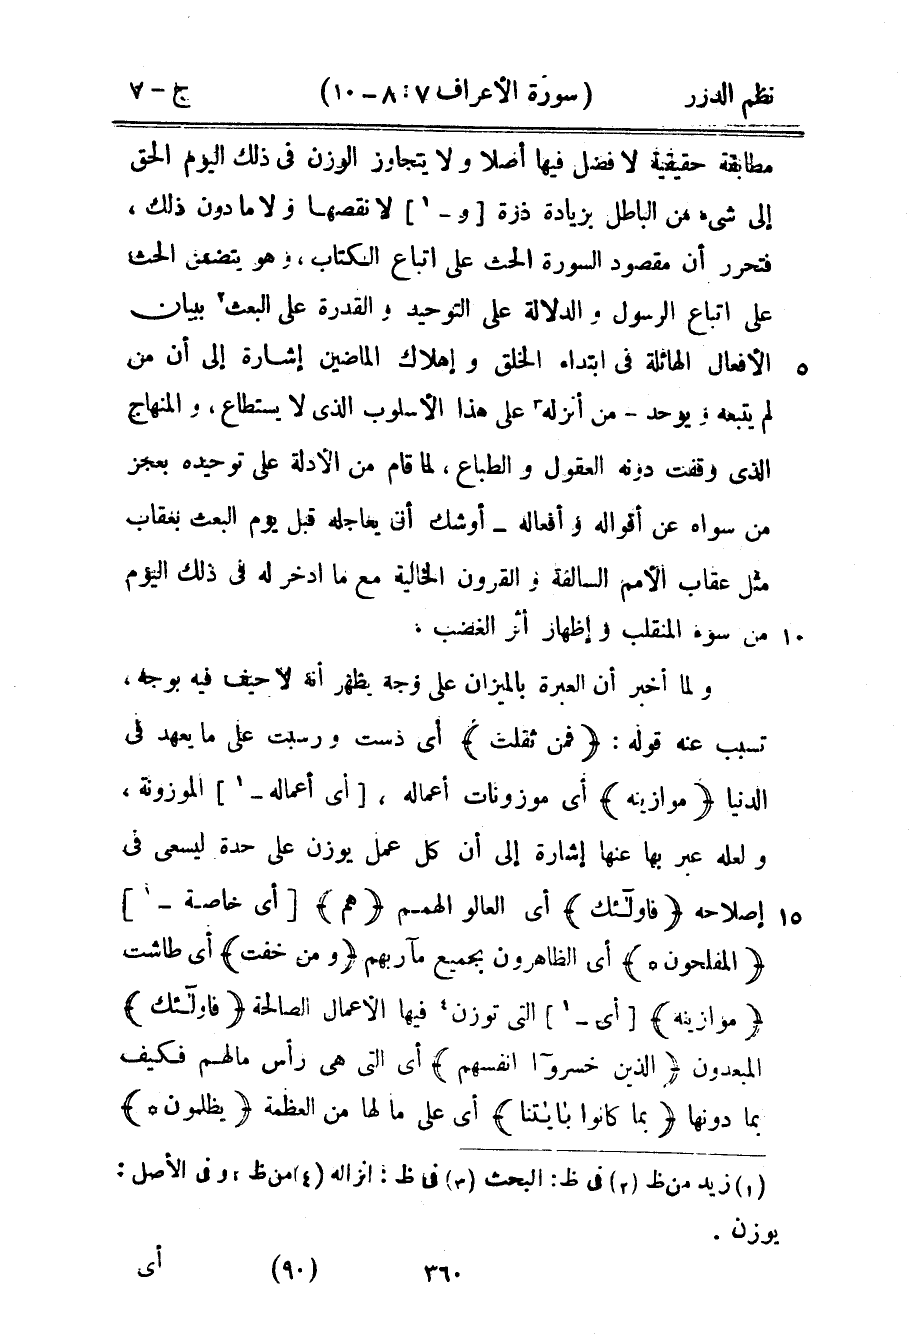 نظم الدرر (سورة الأعراف ٧ : ٨ – ١٠) ج – ٧
مطابقة حقيقية لا فضل فيها أصلا و لا يتجاوز الوزن فى ذلك اليوم الحق
إلى شىء من الباطل بزيادة ذرة [ و – ١ ] لا نقصها و لا ما دون ذلك ،
فتحرر أن مقصود السورة الحث على اتباع الكتاب ، و هو يتضمن الحث
على اتباع الرسول و الدلالة على التوحيد و القدرة على البعث٢ ببيان
الأفعال الهائلة فى ابتداء الخلق و إهلاك الماضين إشارة إلى أن من ٥
لم يتبعه و يوحد – من أنزله٣ على هذا الأسلوب الذى لا يستطاع ، و المنهاج
الذى وقفت دونه العقول و الطباع ، لما قام من الأدلة على توحيده بعجز
من سواه عن أقواله و أفعاله – أوشك أن يعاجله قبل يوم البعث بعقاب
مثل عقاب الأمم السالفة و القرون الخالية مع ما ادخر له فى ذلك اليوم
من سوء المنقلب و إظهار أثر الغضب . ١٠
و لما أخبر أن العبرة بالميزان على وجه يظهر أنه لا حيف فيه بوجه ،
تسبب عنه قوله : ﴿ فمن ثقلت ﴾ أى دست و رسبت على ما يعهد فى
الدنيا ﴿ موازينه ﴾ أى موزونات أعماله ، [ أى أعماله – ١ ] الموزونة ،
و لعله عبر بها عنها إشارة إلى أن كل عمل يوزن على حدة ليسعى فى
إصلاحه ﴿ فاولٓئك ﴾ أى العالو الهمم ﴿ هم ﴾ [ أى خاصة – ١ ] ١٥
﴿ المفلحون ه ﴾ أى الظاهرون بجميع مآربهم ﴿ و من خفت ﴾ أى طاشت
﴿ موازينه ﴾ [ أى – ١ ] التى توزن٤ فيها الأعمال الصالحة ﴿ فاولٓئك ﴾
المبعدون ﴿ الذين خسروٓا انفسهم ﴾ أى التى هى رأس مالهم فكيف
بما دونها ﴿ بما كانوا باٰيٰتنا ﴾ أى على ما لها من العظمة ﴿ يظلمون ه ﴾
(١) زيد من ظ (٢) فى ظ : البحث (٣) فى ظ : انزاله (٤) من ظ ، و فى الأصل :
يوزن .
٣٦٠ (٩٠) أى